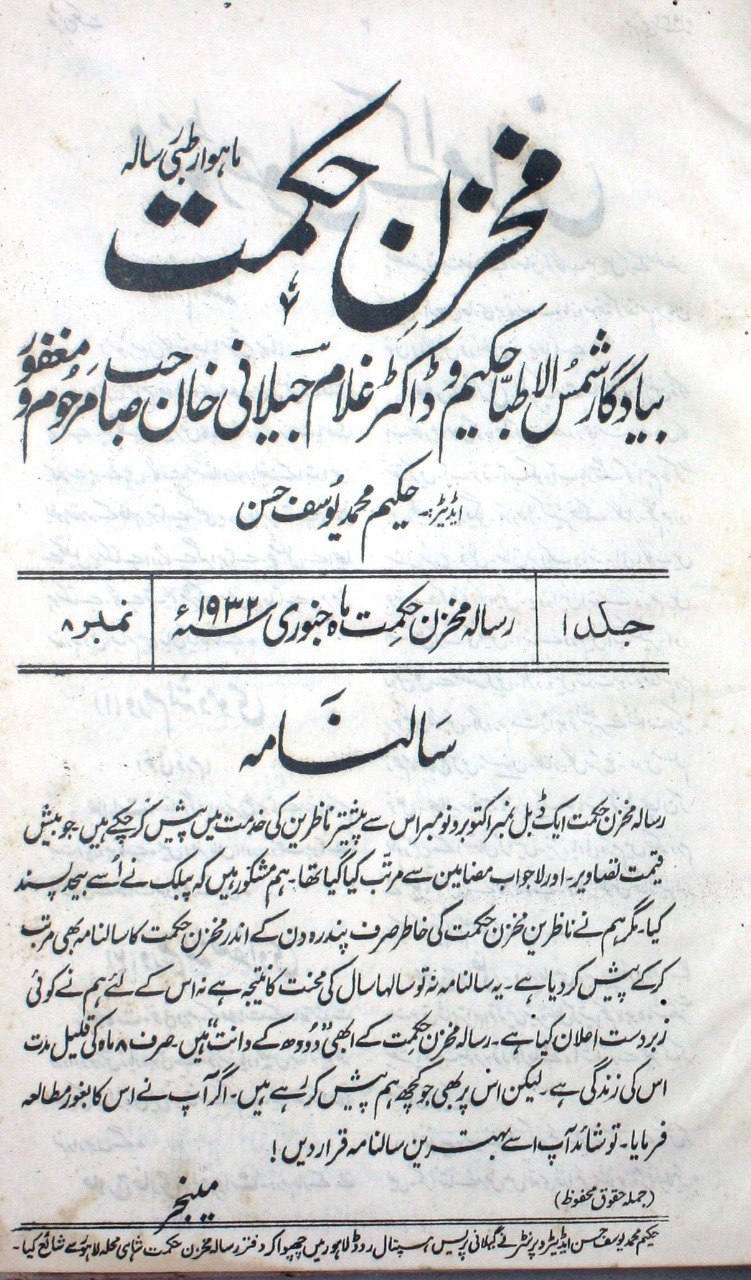 ماہوار طبی رسالہ
مخزن حکمت
بیادگار شمس الاطبا حکیم و ڈاکٹر غلام جیلانی خان صاحب مرحوم و مغفور
ایڈیٹر:۔ حکیم محمد یوسف حسن
جلد ۱ رسالہ مخزن حکمت ماہ جنوری سنہ ۱۹۳۲ء نمبر ۸
سالنامہ
رسالہ مخزن حکمت ایک ڈبل نمبر اکتوبر و نومبر اس سے پیشتر ناظرین کی خدمت میں پیش کر چکے ہیں۔ جو بیش
قیمت تصاویر۔ اور لاجواب مضامین سے مرتب کیا گیا تھا۔ ہم مشکور ہیں کہ پبلک نے اُسے بیحد پسند
کیا۔ مگر ہم نے ناظرین مخزن حکمت کی خاطر صرف پندرہ دن کے اندر مخزن حکمت کا سالنامہ بھی مرتب
کر کے پیش کر دیا ہے۔ یہ سالنامہ نہ تو سالہا سال کی محنت کا نتیجہ ہے نہ اس کے لئے ہم نے کوئی
زبردست اعلان کیا ہے۔ رسالہ مخزن حکمت کے ابھی ”دُودھ کے دانت“ ہیں۔ صرف ۸ ماہ کی قلیل مدت
اس کی زندگی ہے۔ لیکن اس پر بھی جو کچھ ہم پیش کر رہے ہیں۔ اگر آپ نے اس کا بغور مطالعہ
فرمایا۔ تو شائد آپ اسے بہترین سالنامہ قرار دیں!
(جملہ حقوق محفوظ) مینجر
حکیم محمد یوسف حسن ایڈیٹر و پرنٹر نے گیلانی پریس ہسپتال روڈ لاہور میں چھپوا کر دفتر رسالہ مخزن حکمت شاہی محلہ لاہور سے شائع کیا۔